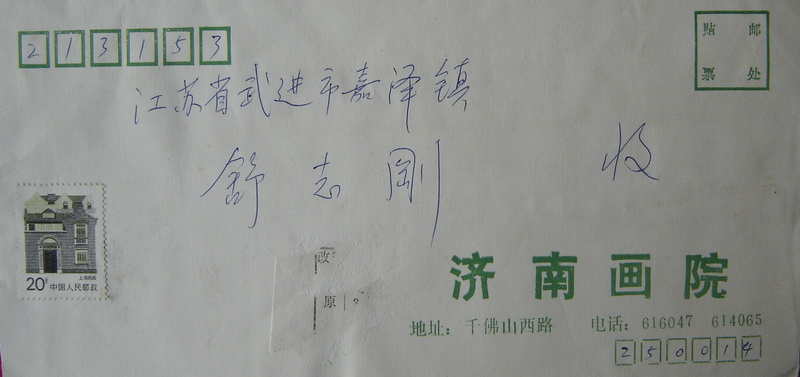 213153
贴 邮
票 处
江苏省武进市嘉泽镇
舒志刚 收
20分
上海民居
中国人民邮政
改
原
济南画院
地址：千佛山西路 电话：616047 614065
250014